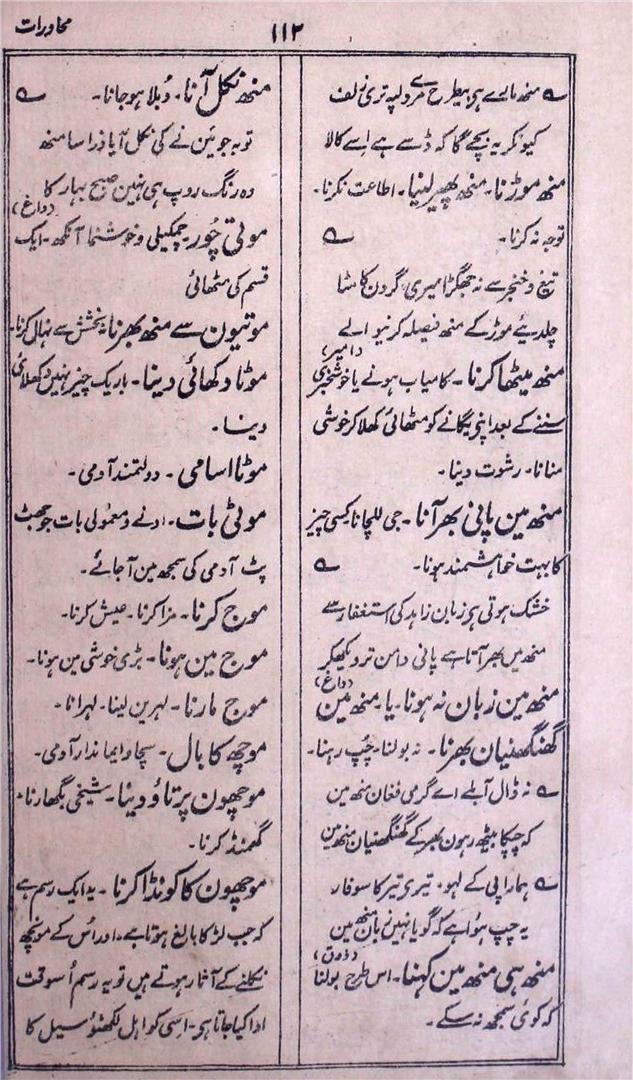 ۱۱۲
محاورات
منھ مارے ہی بیطرح سے مردلپہ تری زلف
کیونکر یہ بچے گا کہ ڈسے ہے اِسے کالا
منھ موڑنا۔ منھ پھیر لینا۔ اطاعت نکرنا۔
توجہ نہ کرنا۔
تیغ و خنجر سے نہ جھگڑا میری گردن کا مٹا
چلدیئے موڑ کے منھ فیصلہ کرنیوالے
(امیر)
منھ میٹھا کرنا۔ کامیاب ہونے یا خوشخبری
سننے کے بعد اپنی یگانے کو مٹھائی کھلا کر خوشی
منانا۔ رشوت دینا۔
منھ مین پانی بھر آنا۔ جی للچانا کسی چیز
کا بہت خواہشمند ہونا۔
خشک ہوتی ہی زبان زاہد کی استغفار سے
منھ میں بھر آتا ہے پانی دامن تر دیکھکر
(داغ)
منھ مین زبان نہ ہونا۔ یا۔ منھ مین
گھنگھنیان بھرنا۔ نہ بولنا۔ چُپ رہنا۔
نہ ڈال آبلے اے گرمی فغان منھ مین
کہ چپکا بیٹھ رہون بھر کے گھنگھنیان منھ مین
ہمارا پی کے لہو۔ تیری تیر کا سوفار
یہ چپ ہوا ہے کہ گویا نہین زبان منھ مین
(ذوق)
منھ ہی منھ مین کہنا۔ اس طرح بولنا
کہ کوئی سمجھ نہ سکے۔
منھ نکل آنا۔ دُبلا ہو جانا۔
توبہ جو مَین نے کی نکل آیا ذرا سا منھ
وہ رنگ روپ ہی نہین صبح بہار کا
(داغ)
موتی چُور۔ چمکیلی و خوشنما آنکھ۔ ایک
قسم کی مٹھائی
موتیون سے منھ بھرنا۔ بخشش سے نہال کرنا۔
موٹا دکھائی دینا۔ باریک چیز نہین دکھلائی
دینا۔
موٹا اسامی۔ دولتمند آدمی۔
موٹی بات۔ ادنے و معمولی بات جو جھٹ
پٹ آدمی کی سمجھ مین آ جائے۔
موج کرنا۔ مزا کرنا۔ عیش کرنا۔
موج مین ہونا۔ بڑی خوشی مین ہونا۔
موج مارنا۔ لہرین لینا۔ لہرانا۔
موچھ کا بال۔ سچا و ایماندار آدمی۔
موچھون پر تاؤ دینا۔ شیخی بگھارنا۔
گھمنڈ کرنا۔
موچھون کا کونڈا کرنا۔ یہ ایک رسم ہے
کہ جب لڑکا بالغ ہوتا ہے۔ اور اُس کے مونچھ
نکلنے کے آثار ہوتے ہیں تو یہ رسم اُسوقت
ادا کیا جاتا ہی۔ اسی کو اہل لکھنؤ سبیل کا